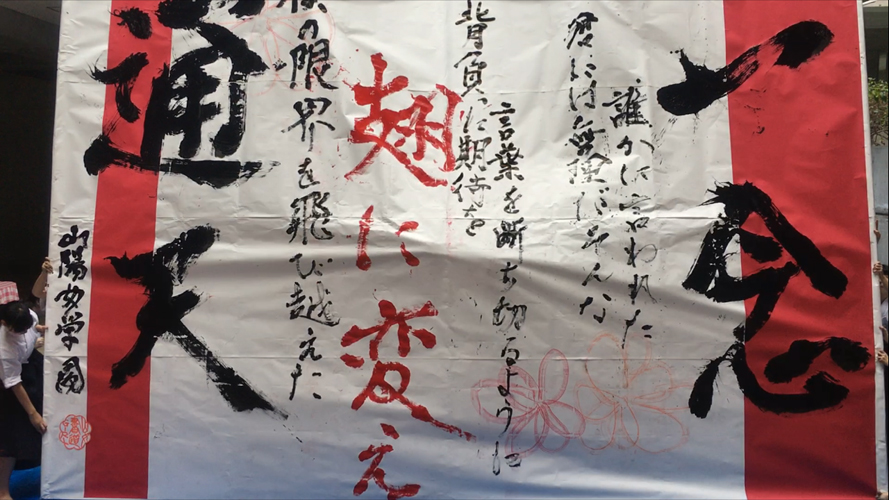 一念
誰かに言われた
君には無理だそんな
言葉を断ち切るように
背負った期待を
翅に変え
僕の限界を飛び越えた
通天
山陽女学園